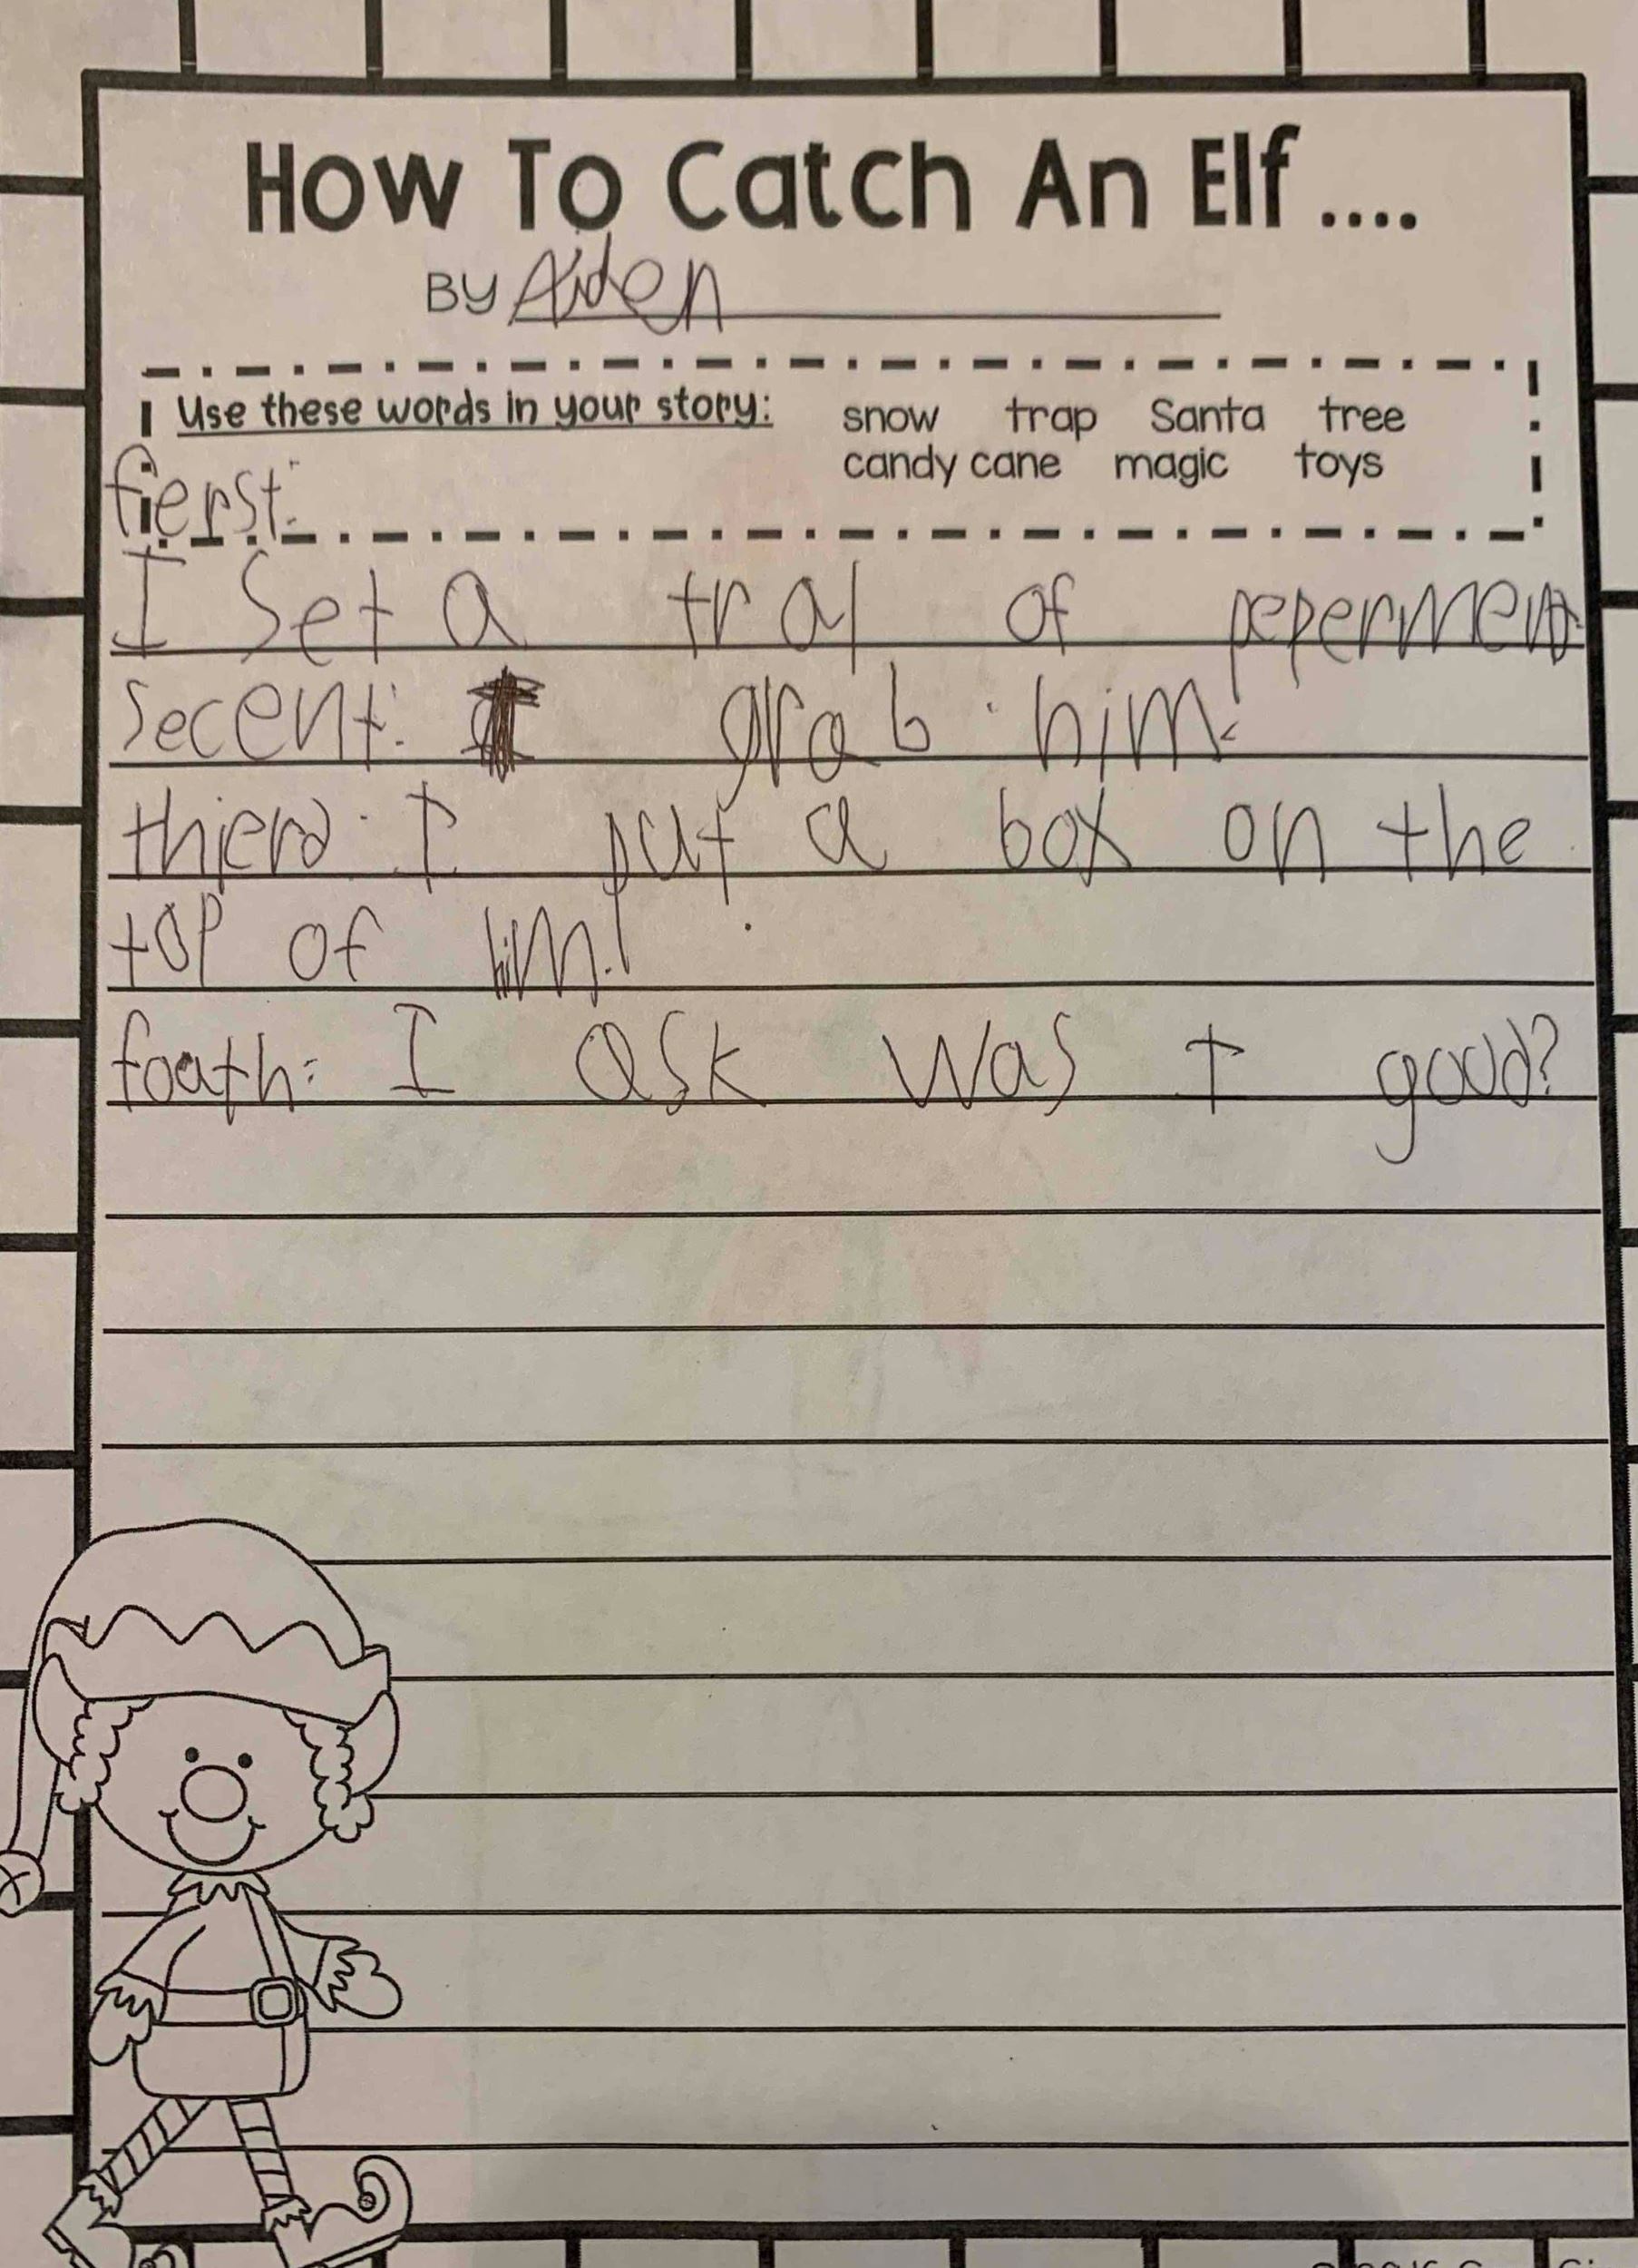 How To Catch An Elf ....
BY Aiden
Use these words in your story: snow trap Santa tree
candy cane magic toys
fierst:
I Set a tral of peperment
Secent: grab him!
thierd: I put a box on the
top of him!
foath: I ask was I good?